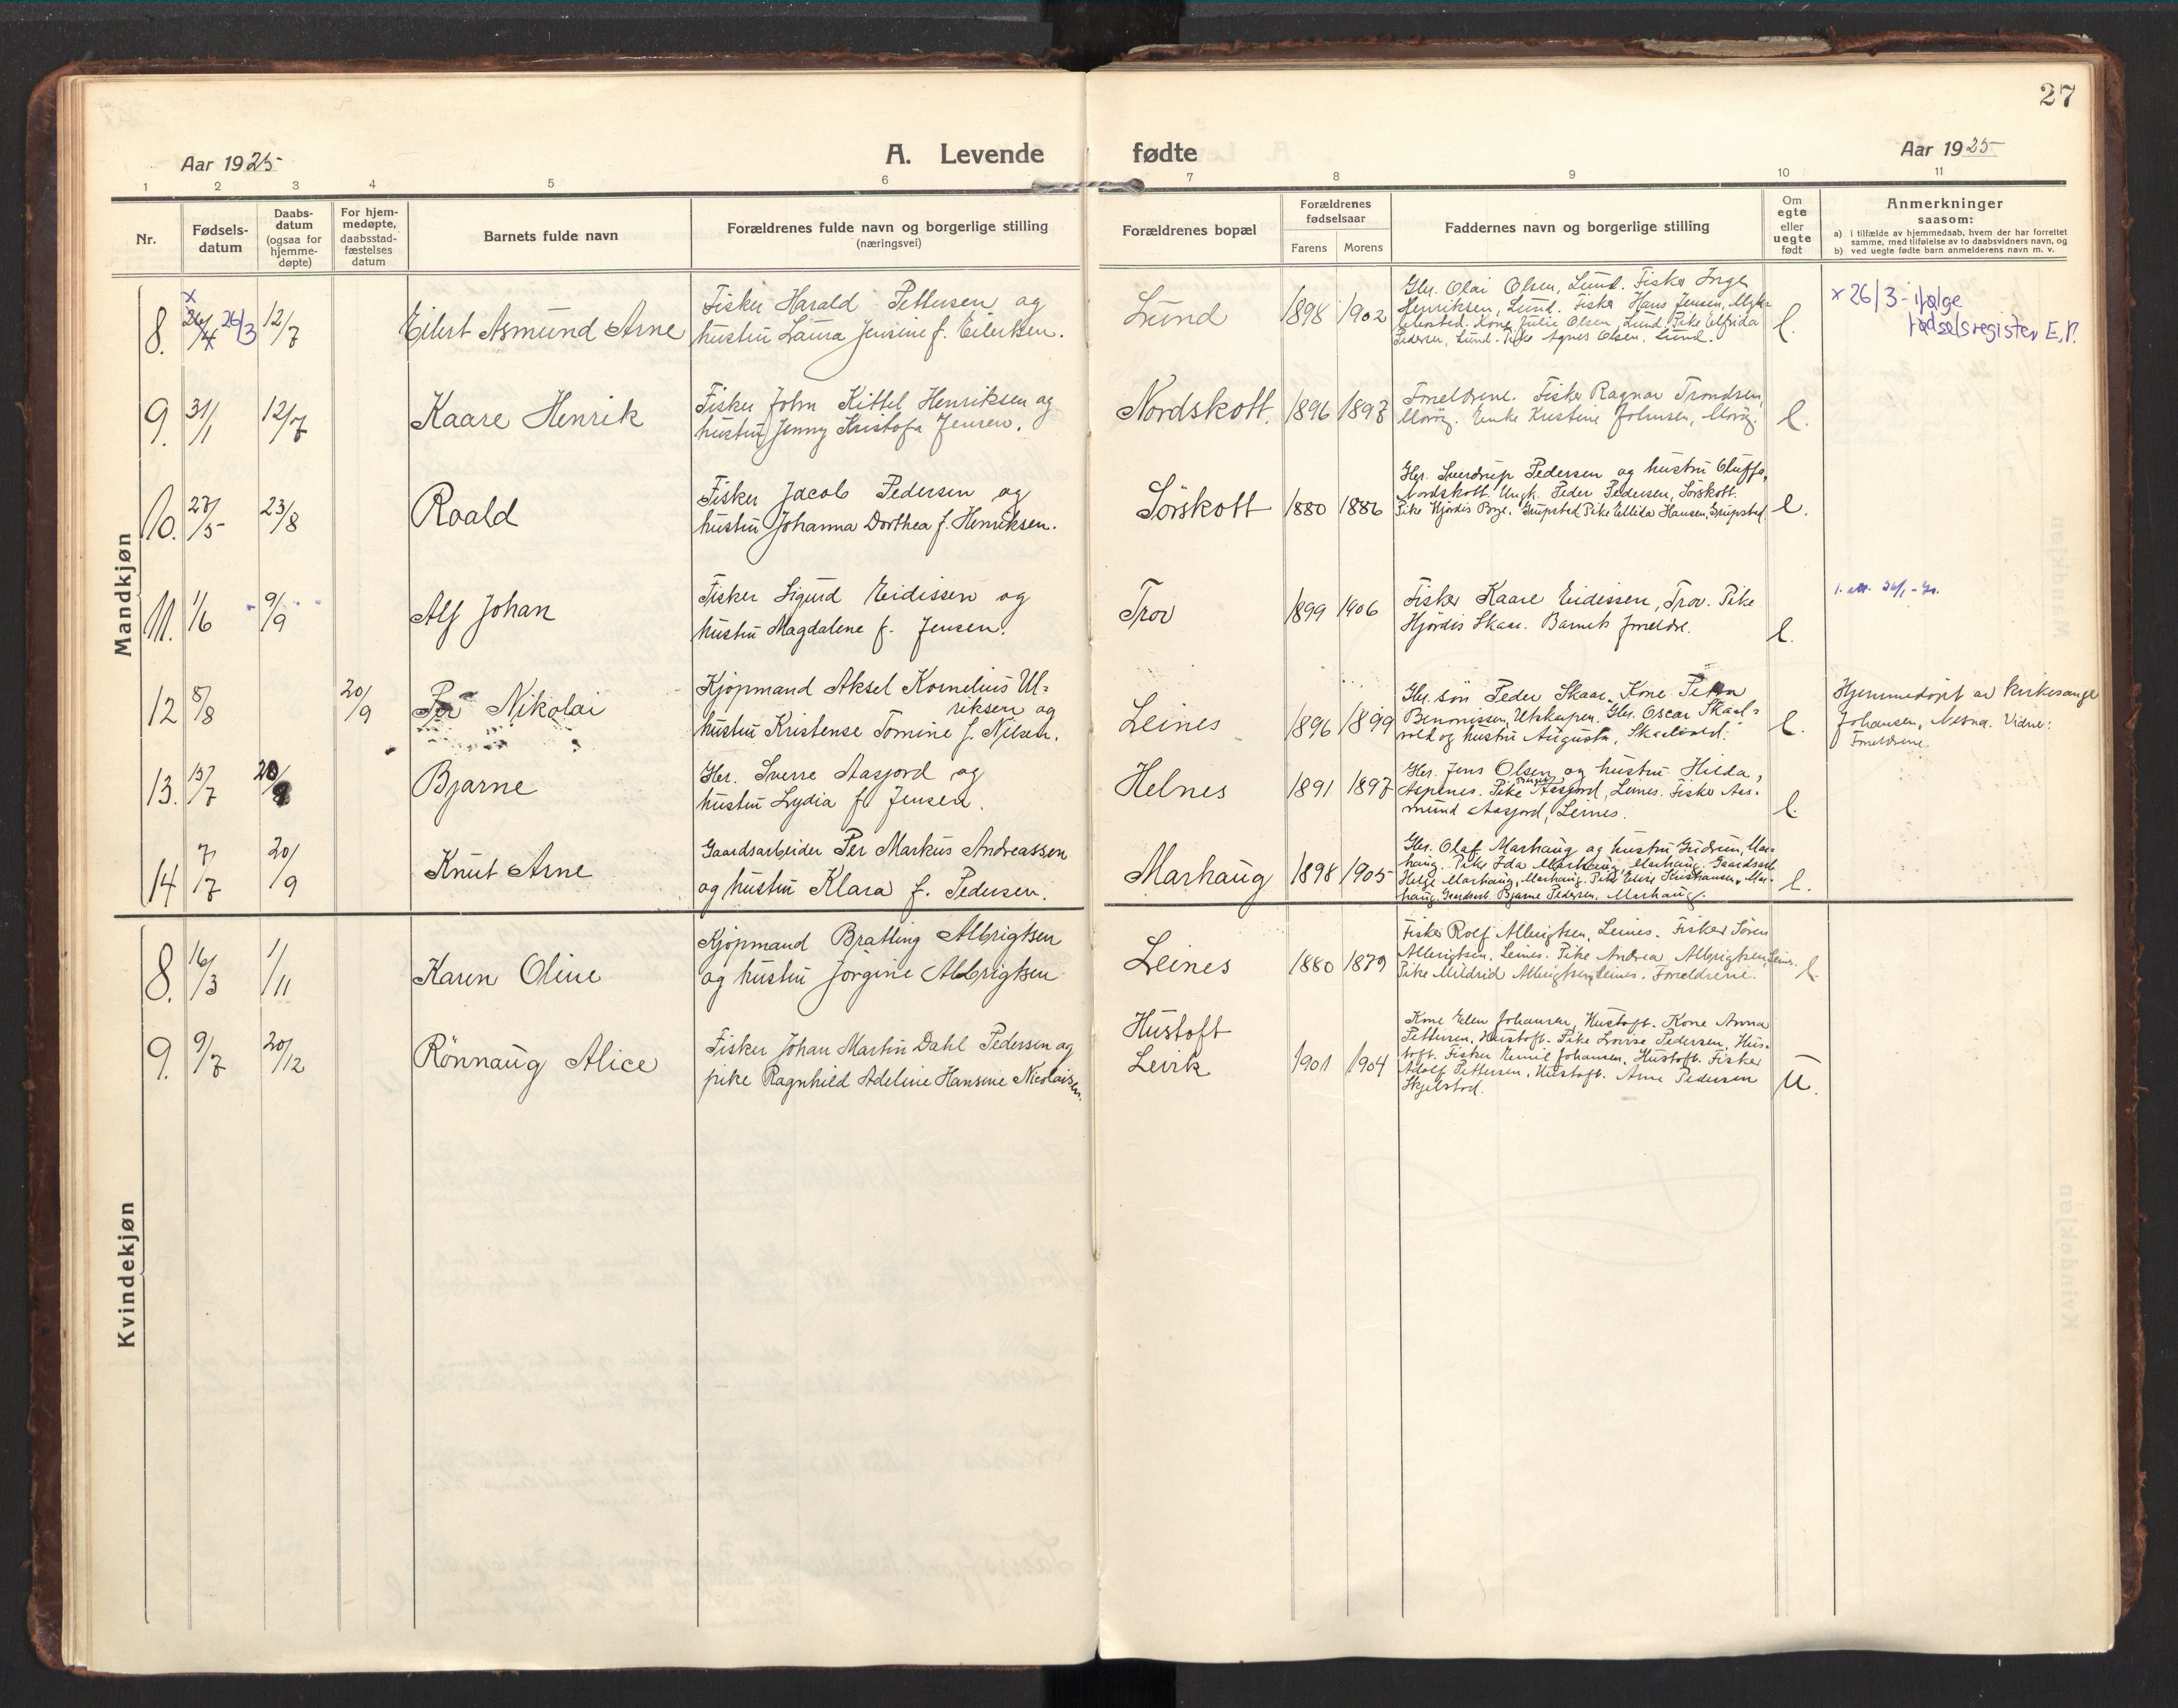 27
Aar 1925
A. Levende fødte
Aar 1925
1 2 3 4 5 6 7 8 9 10 11
Nr.
Fødsels-
datum
Daabs-
datum
(ogsaa for
hjemme-
døpte)
For hjem-
medøpte,
daabsstad-
fæstelses
datum
Barnets fulde navn
Forældrenes fulde navn og borgerlige stilling
(næringsvei)
Forældrenes bopæl
Forældrenes
fødselsaar
Farens Morens
Faddernes navn og borgerlige stilling
Om
egte
eller
uegte
født
Anmerkninger
saasom:
a) i tilfælde av hjemmedaab, hvem der har forrettet
samme, med tilføielse av to daabsvidners navn, og
b) ved uegte fødte barn anmelderens navn m. v.
Mandkjøn
8. x 26/4 26/3 12/7
Eilert Asmund Arne
Fisker Harald Pettersen og
hustru Laura Jensine f. Eilertsen.
Lund
1898 1902
Gbr. Olai Olsen, Lund. Fisker Inge
Henriksen, Lund. Fisker Hans Jensen,
Kone Julie Olsen, Lund. Pike Elfrida
Pedersen, Lund. Pike Agnes Olsen, Lund.
e.
x 26/3 - ifølge
fødselsregister E.P.
9. 31/1 12/7
Kaare Henrik
Fisker John Kittel Henriksen og
hustru Jenny Kristofa Jensen.
Nordskott.
1896 1893
Foreldrene. Fisker Ragnar Trondsen,
Enke Kristine Johnsen,
e.
10. 27/5 23/8
Roald
Fisker Jacob Pedersen og
hustru Johanna Dorthea f. Henriksen.
Sörskott
1880 1886
Gbr. Sverdrup Pedersen og hustru Oluffa,
Nordskott. Ungk. Peder Pedersen, Sörskott.
Pike Hjördis Brye. Grupstad Pike Ellida Hansen, Grupstad.
e.
11. 1/6 9/9
Alf Johan
Fisker Sigurd Eidissen og
hustru Magdalene f. Jensen.
Trov
1899 1906
Fisker Kaare Eidissen, Trov. Pike
Hjördis Skaar. Barnets foreldre.
e.
12 8/8 20/9
Per Nikolai
Kjöpmand Aksel Kornelius Ul-
riksen og
hustru Kristense Tomine f. Nilsen.
Leines
1896 1899
Gbr. sön Peder Skaar. Kone Petra
Benonissen, Utskarpen. Gbr. Oscar Skaal-
vold og hustru Augusta, Skaalvold.
e.
Hjemmedöpt av kirkesanger
Johansen, Nesna. Vidner:
Foreldrene.
13. 15/7 20/9
Bjarne
Gbr. Sverre Aasjord og
hustru Lydia f. Jensen.
Helnes
1891 1897
Gbr. Jens Olsen og hustru Hilda,
Aspenes. Pike Aasjord, Leines. Fisker Aas-
mund Aasjord, Leines.
e.
14 7/7 20/9
Knut Arne
Gaardsarbeider Per Markus Andreassen
og hustru Klara f. Pedersen.
Marhaug
1898 1905
Gbr. Olaf Marhaug og hustru Gudrun, Mar-
haug. Pike Ida Marhaug, Marhaug. Gaardsarb.
Helge Marhaug, Marhaug. Pike Elise Kristiansen, Mar-
haug. Gaardsarb. Bjarne Pedersen, Marhaug.
e.
Kvindekjøn
8. 16/3 1/11
Karen Oline
Kjöpmand Bratling Albrigtsen
og hustru Jörgine Albrigtsen
Leines
1880 1879
Fisker Rolf Albrigtsen, Leines. Fisker Sören
Albrigtsen, Leines. Pike Andrea Albrigtsen, Leines.
Pike Mildrid Albrigtsen, Leines. Foreldrene.
e.
9. 9/7 20/12
Rönnaug Alice
Fisker Johan Martin Dahl Pedersen og
pike Ragnhild Adeline Hansine Nicolaisen.
Hustoft
Levik
1901 1904
Kone Elen Johansen, Hustoft. Kone Anna
Pettersen, Hustoft. Pike Lovise Pedersen, Hus-
toft. Fisker Emil Johansen, Hustoft. Fisker
Adolf Pettersen, Hustoft. Arne Pedersen
Skjelstad.
U.